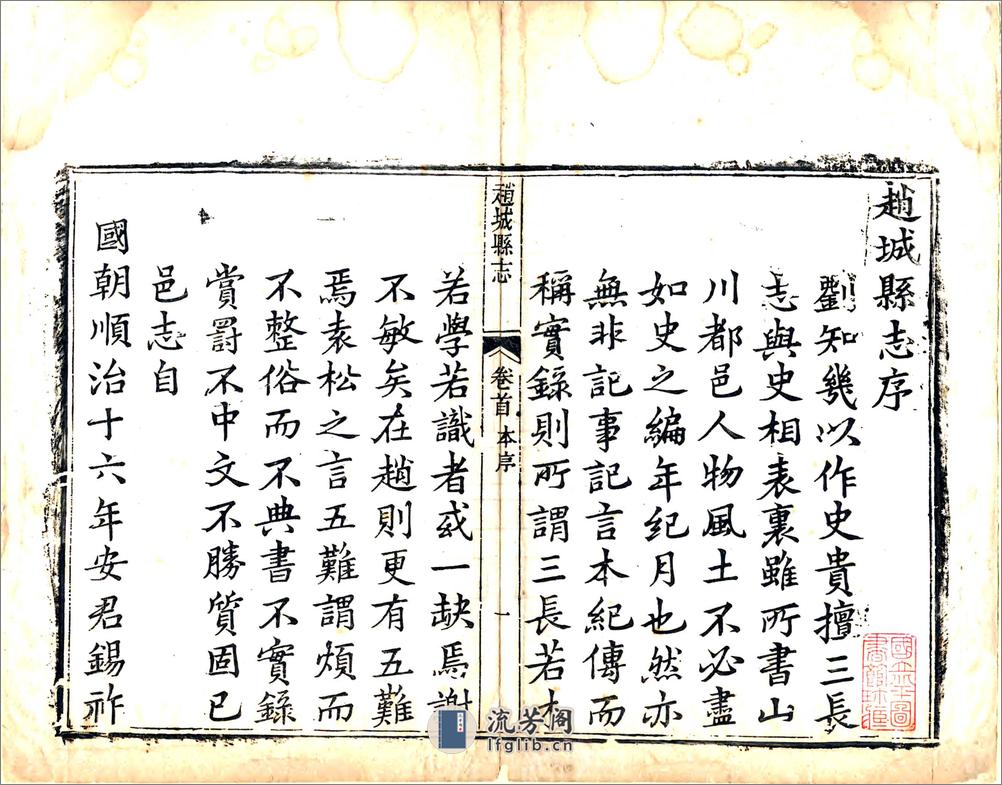 趙城縣志序
劉知幾以作史貴擅三長
志與史相表裏雖所書山
川都邑人物風土不必盡
如史之編年紀月也然亦
無非記事記言本紀傳而
稱實錄則所謂三長若才
趙城縣志
卷首 本序
一
若學若識者或一缺焉謝
不敏矣在趙則更有五難
焉袁松之言五難謂煩而
不整俗而不典書不實錄
賞罰不中文不勝質固已
邑志自
國朝順治十六年安君錫祚
流芳阁
lfglib.cn